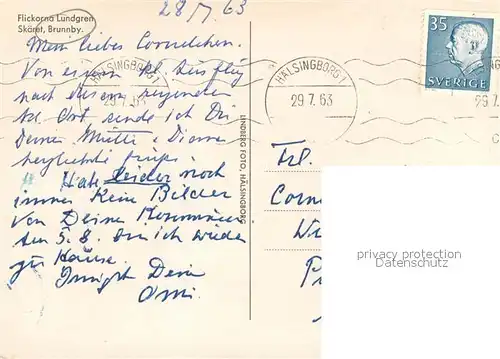 28/7.63
Flickorna Lundgren
Skäret, Brunnby.
Mein liebes Cornelchen.
Von einem kl. Ausflug
nach diesem reizenden
kl. Ort sende ich Dir
Deiner Mutti + Diane
herzlichste Grüße.
Habe leider noch
immer keine Bilder
von Deiner
Am 5.8. bin ich wieder
zu Hause.
Innigst Deine
Omi.
LINDBERG FOTO, HÄLSINGBORG
HÄLSINGBORG 1
29.7.63
HÄLSINGBORG 1
29 7. 63
35
SVERIGE
29.7.
Frl.
Corne
privacy protection
Datenschutz